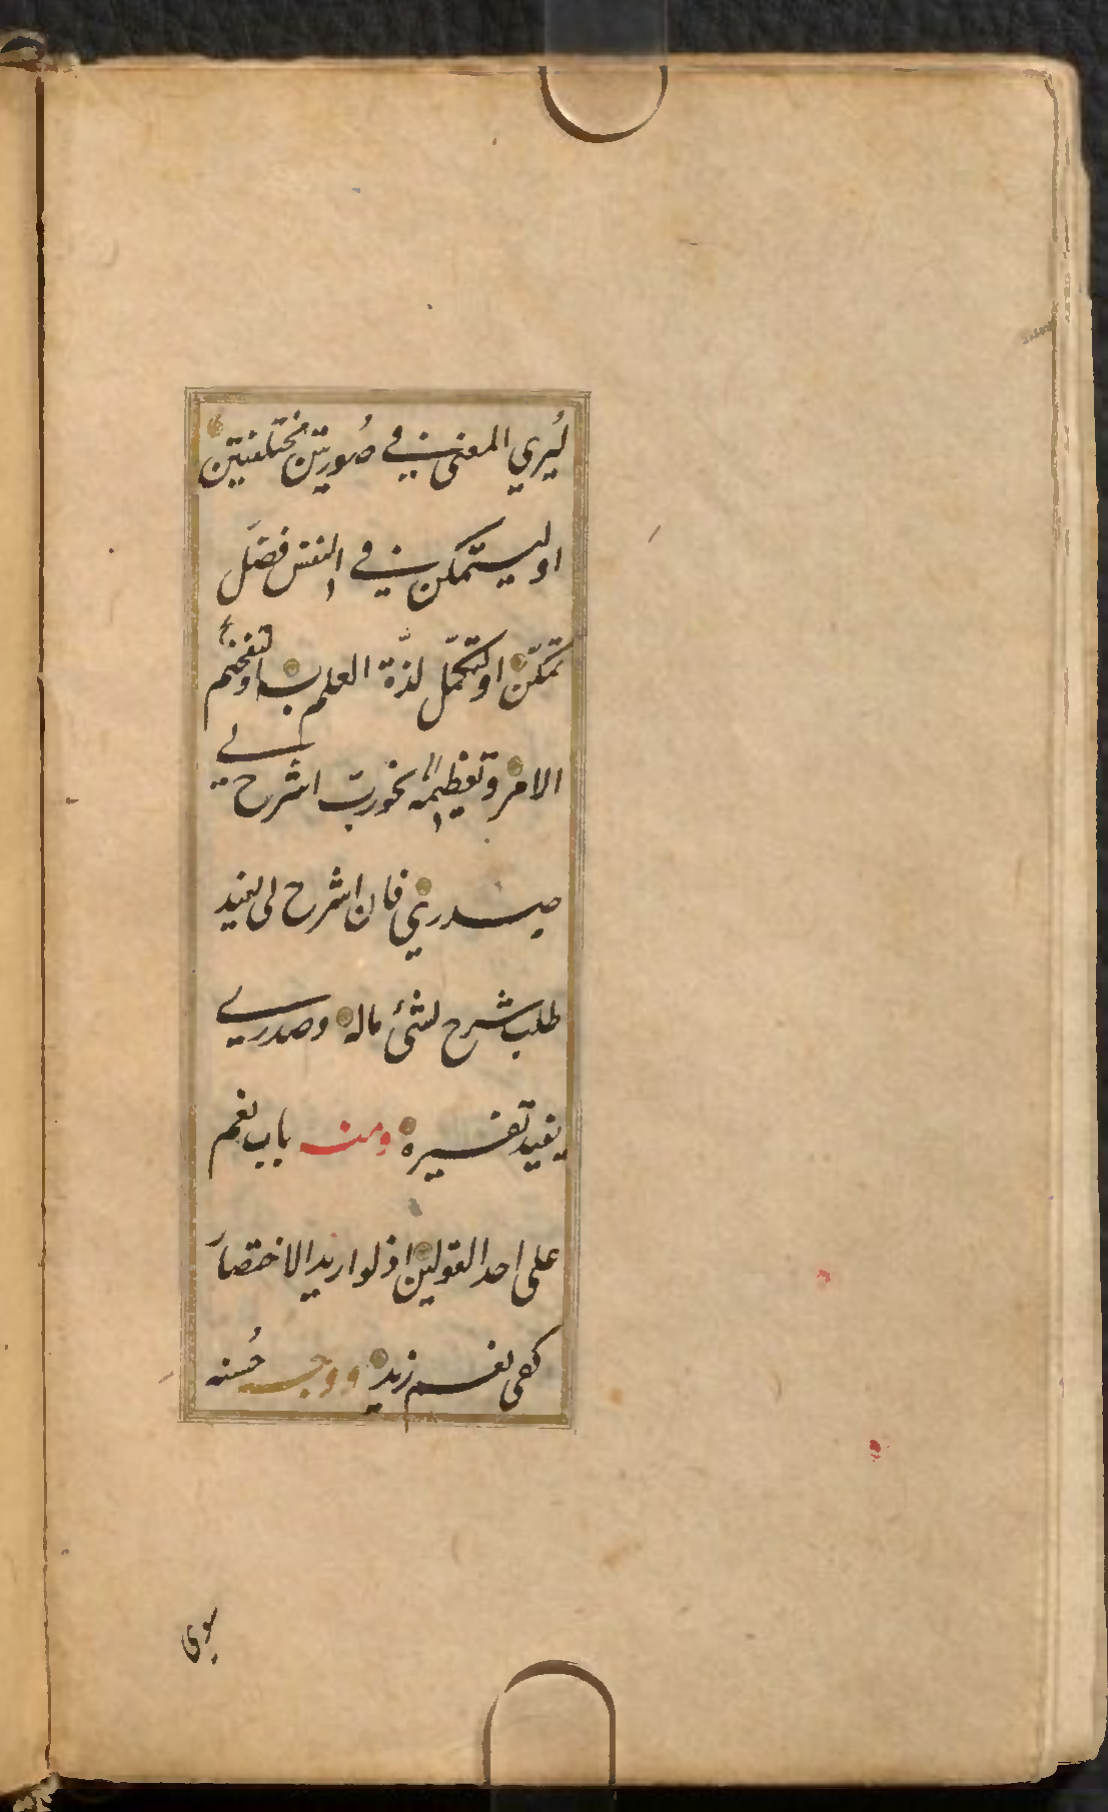 ليُري المعنى في صُورتين مختلفتين
او ليستمكن في النفس فضل
تمكّن او لتكمل لذّة العلم به او لتفخيم
الامر وتعظيمه نحو رب اشرح لي
صدري فان اشرح لى يفيد
طلب شرح لشئ ماله وصدري
يفيد تفسيره ومنه باب نعم
على احد القولين اذ لو اريد الاختصار
كفى نعم زيد ووجه حُسنه
سوى